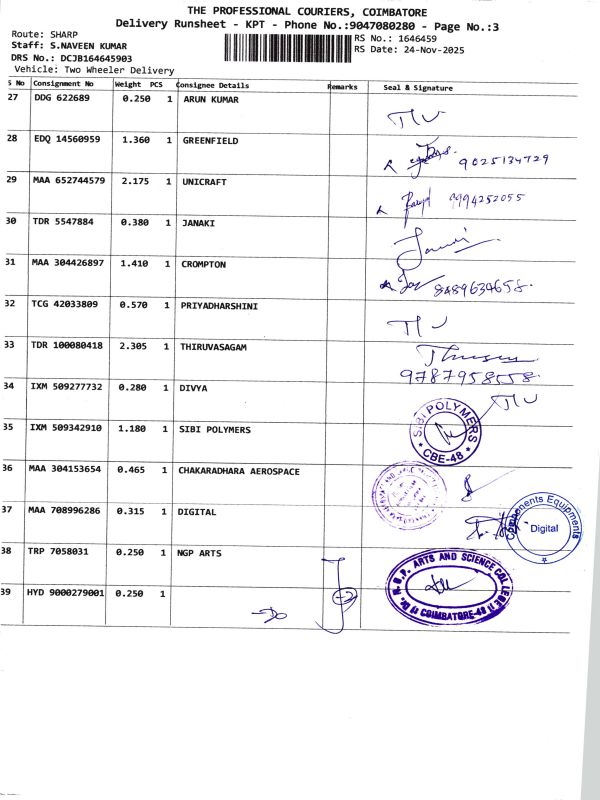 THE PROFESSIONAL COURIERS, COIMBATORE
Delivery Runsheet - KPT - Phone No.:9047080280 - Page No.:3
Route: SHARP
RS No.: 1646459
Staff: S.NAVEEN KUMAR
RS Date: 24-Nov-2025
DRS No.: DCJB164645903
Vehicle: Two Wheeler Delivery
S No Consignment No Weight PCS Consignee Details Remarks Seal & Signature
27 DDG 622689 0.250 1 ARUN KUMAR
28 EDQ 14560959 1.360 1 GREENFIELD
9025134729
29 MAA 652744579 2.175 1 UNICRAFT
9994252055
30 TDR 5547884 0.380 1 JANAKI
31 MAA 304426897 1.410 1 CROMPTON
8489634658.
32 TCG 42033809 0.570 1 PRIYADHARSHINI
33 TDR 100080418 2.305 1 THIRUVASAGAM
34 IXM 509277732 0.280 1 DIVYA
35 IXM 509342910 1.180 1 SIBI POLYMERS
SIBI POLYMERS
* CBE-48 *
36 MAA 304153654 0.465 1 CHAKARADHARA AEROSPACE
37 MAA 708996286 0.315 1 DIGITAL
Components Equipments
Digital
38 TRP 7058031 0.250 1 NGP ARTS
Dr. N.G.P. ARTS AND SCIENCE COLLEGE
COIMBATORE-48
39 HYD 9000279001 0.250 1